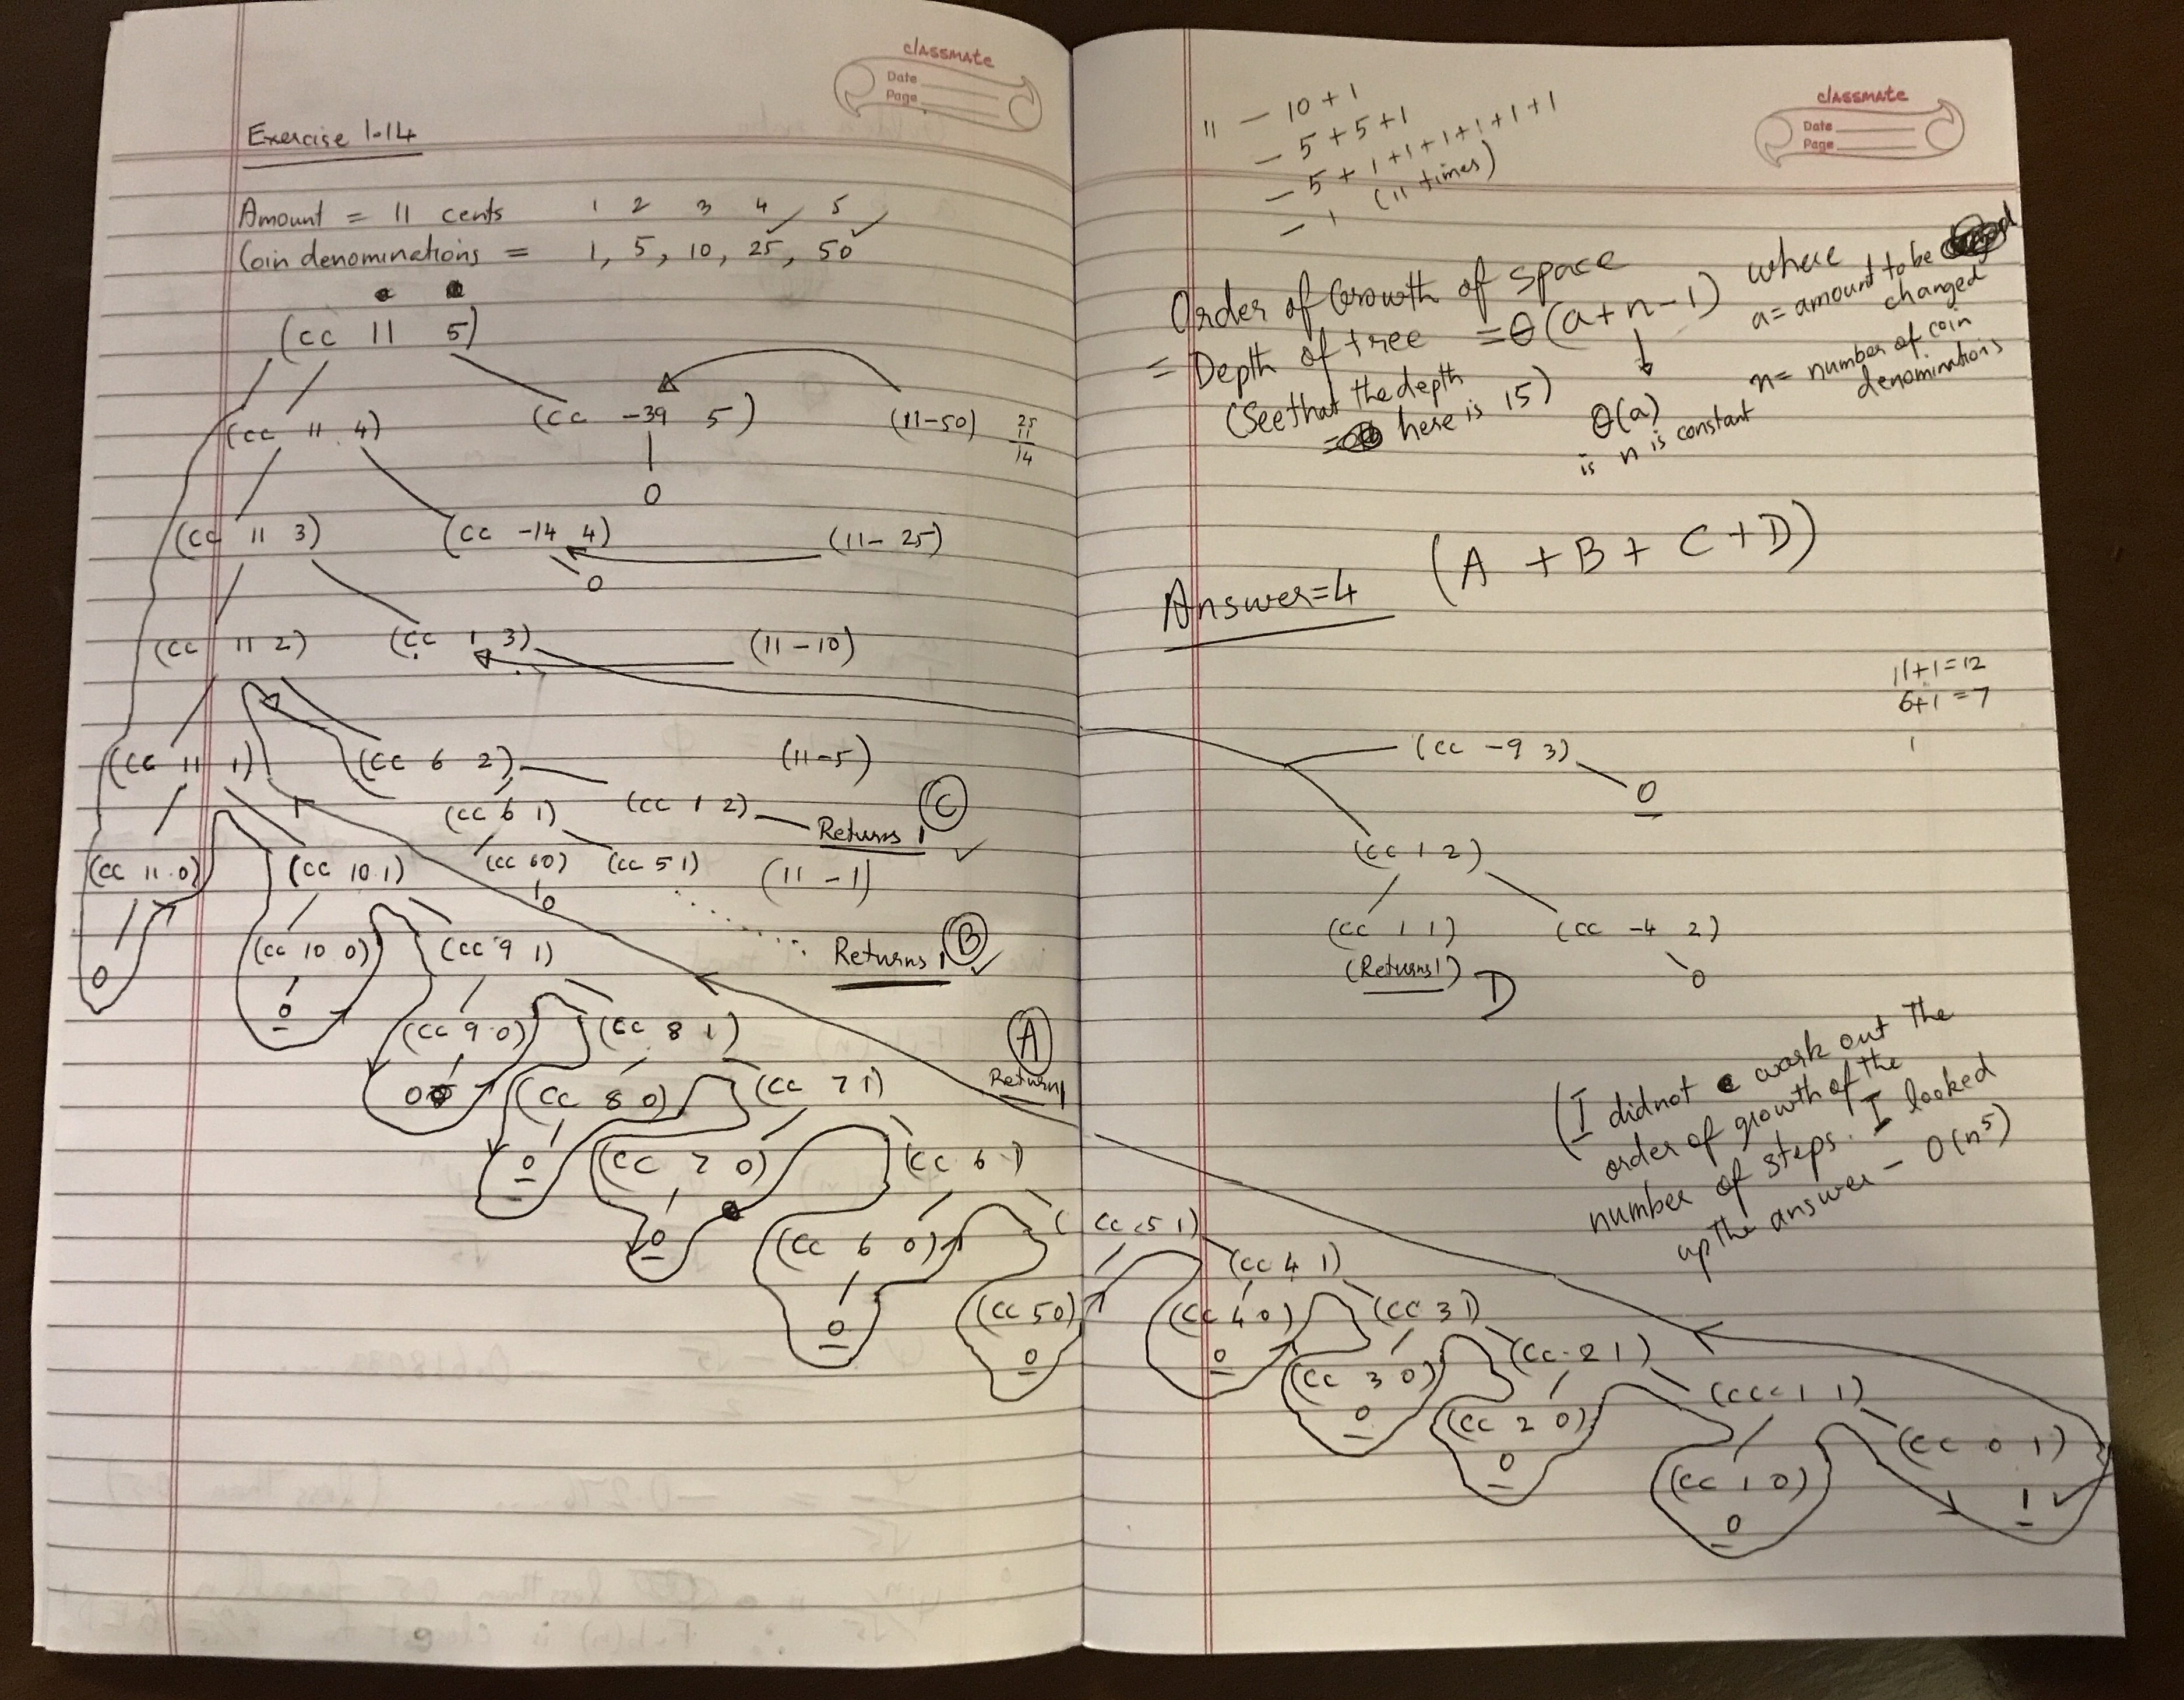 classmate
Date
Page
Exercise 1.14
Amount = 11 cents 1 2 3 4 5
Coin denominations = 1, 5, 10, 25, 50
(cc 11 5)
(cc 11 4) (cc -39 5) (11-50) 25
11
14
0
(cc 11 3) (cc -14 4) (11-25)
0
(cc 11 2) (cc 1 3) (11-10)
(cc 11 1) (cc 6 2) (11-5)
(cc 6 1) (cc 1 2) Returns 1 C
(cc 11 0) (cc 10 1) (cc 6 0) (cc 5 1) (11-1)
0
0 (cc 10 0) (cc 9 1) Returns 1 B
0
(cc 9 0) (cc 8 1) A
0 (cc 8 0) (cc 7 1) Return 1
0 (cc 7 0) (cc 6 1)
0 (cc 6 0)
0 (cc 5 0)
0
classmate
Date
Page
11 - 10 + 1
- 5 + 5 + 1
- 5 + 1 + 1 + 1 + 1 + 1 + 1
- 1 (11 times)
Order of Growth of space
= Depth of tree = θ(a+n-1) where
a= amount to be
changed
n= number of coin
denominations
(See that the depth
here is 15)
θ(a)
is n is constant
Answer=4 (A + B + C + D)
11+1=12
6+1=7
1
(cc -9 3)
0
(cc 1 2)
(cc 1 1) (cc -4 2)
(Returns 1) D 0
(I didnot work out the
order of growth of the
number of steps. I looked
up the answer - O(n⁵)
(cc 5 1)
(cc 4 1)
(cc 4 0) (cc 3 1)
0 (cc 3 0) (cc 2 1)
0 (cc 2 0) (cc 1 1)
0 (cc 1 0) (cc 0 1)
0 1